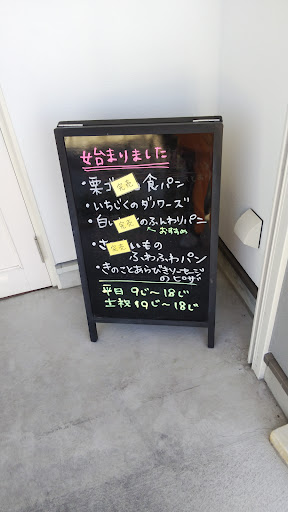 始まりました
・栗 完売 食パン
・いちじくのダノワーズ
・白い 完売 のふんわりパン
おすすめ
・さ 完売 いもの
ふわふわパン
・きのことあらびきソーセージ
のピザ
平日 9じ〜18じ
土祝 9じ〜18じ